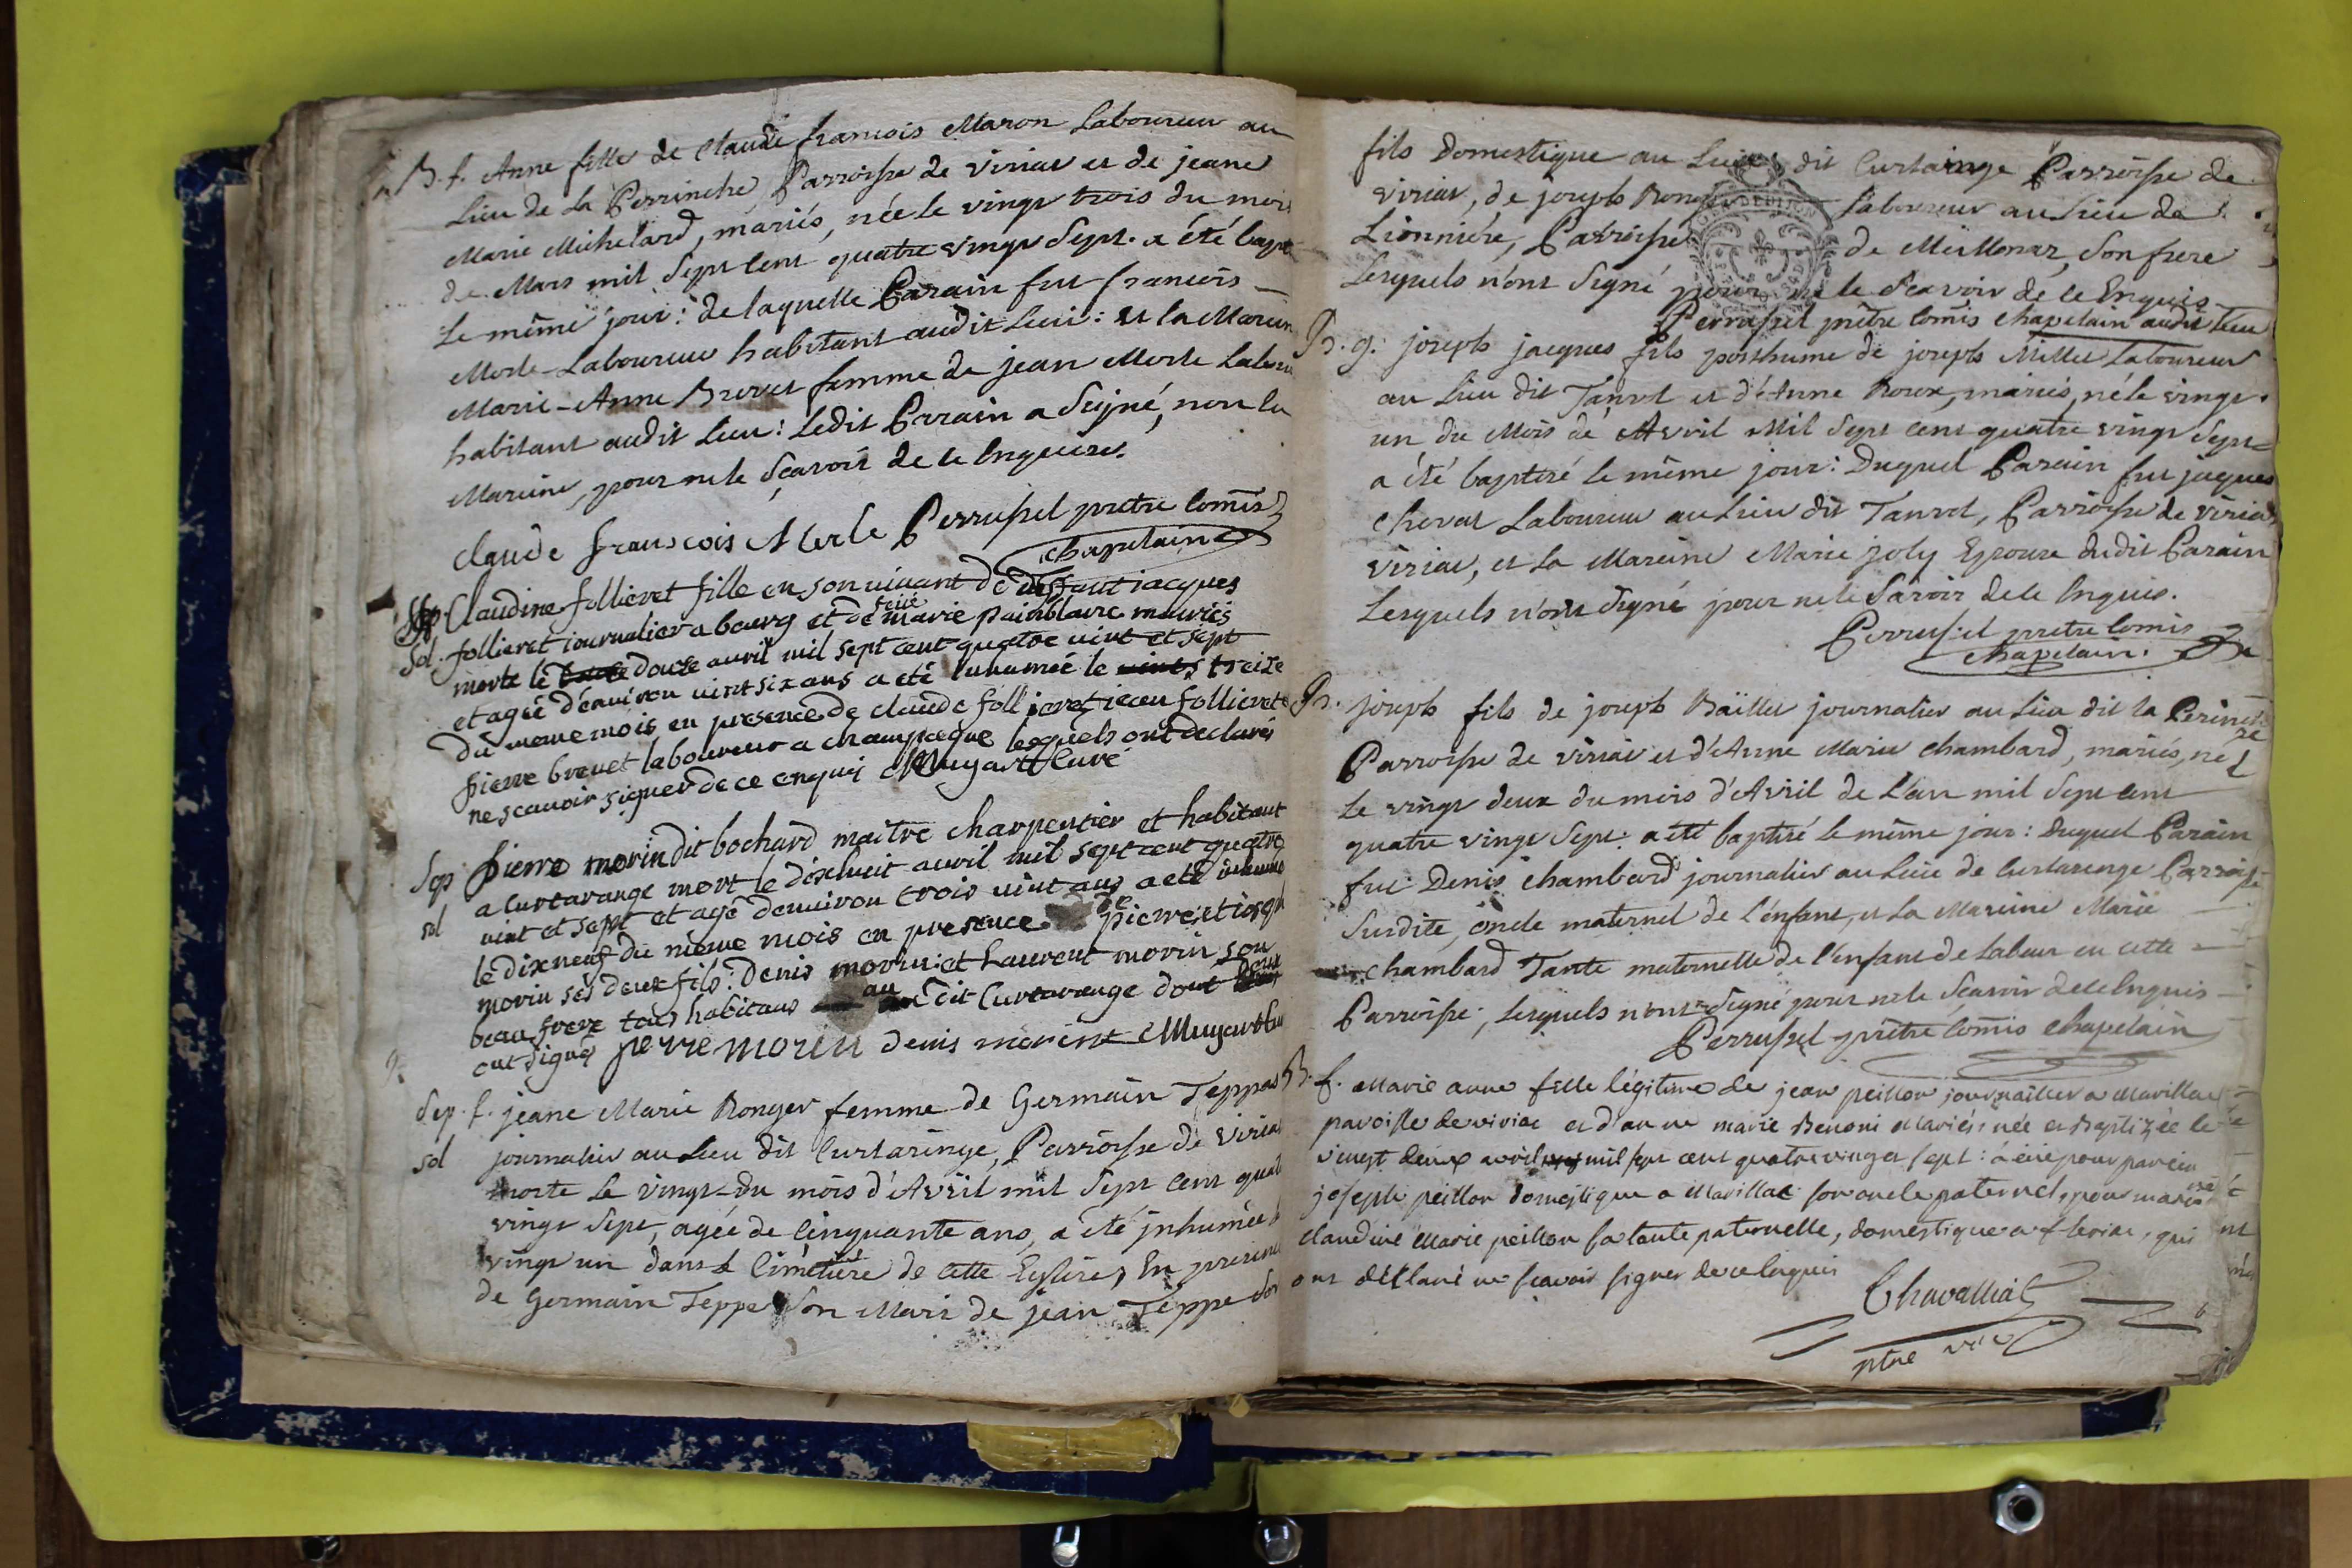 B. f. Anne fille de Claude francois Maron Laboureur au
Lieu de La Perrinche Parroisse de Viriat et de jeane
Marie Michelard, mariés, née le vingt trois du mois
de Mars mil Sept Cent quatre vingt Sept. a été bapt
Le même jour: de laquelle Parain fut francois
Merle Laboureur habitant audit Lieu: et la Mareine
Marie-Anne Brevet femme de jean Merle Labour
habitant audit Lieu: Ledit Parain a Signé, non la
Mareine, pour ne le Sçavoir de ce Enquise.
Claude francois Merle Perrussel pretre Comis
chapelain
Sep. Claudine follieret fille en son vivant de deffunt jacques
Sol. follieret journalier a bourg et de feüe marie painblanc mariés
morte le douze avril mil sept cent quatre vint et sept
et agée d'environ vint six ans a été inhumée le treize
du meme mois, en presence de claude follieret jean follieret
pierre brevet laboureur a champagne lesquels ont declarés
ne scavoir signer de ce enquis Mugart Curé
Sep. pierre morin dit bochard maitre charpentier et habitant
a Curtarange mort le dixhuit avril mil sept cent quatre
sol vint et sept et agé d'environ trois vint ans a eté inhumé
le dixneuf du meme mois en presence de pierre, et joseph
morin ses deux fils: denis morin: et Laurent morin son
beau frere tous habitans au dit Curtarange dont deux
ont signés pierre morin denis morin Mugart Curé
Sep. f. jeane Marie Ronger femme de Germain Teppe
sol journalier au Lieu dit Curtaringe, Parroisse de Viriat
morte Le vingt du mois d'Avril mil Sept Cent quatre
vingt Sept, agée de Cinquante ans, a été inhumée le
vingt un dans le Cimetiére de Cette Eglise, En presence
de Germain Teppe Son Mari de jean Teppe Son
fils Domestique au Lieu dit Curtaringe Parroisse de
viriat, de joseph Rong Laboureur au Lieu de
Lionniére, Parroisse de Meillonaz, Son frere
Lesquels n'ont Signé pour ne le Scavoir de ce Enquis
Perrussel prêtre Comis Chapelain audit lieu
B. g. joseph jacques fils posthume de joseph Millet Laboureur
au Lieu dit Tanvol et d'Anne Roux, mariés, né le vingt
un du Mois de Avril Mil Sept cent quatre vingt Sept
a été baptisé le même jour: Duquel Parain fut jaques
Chevat Laboureur au Lieu dit Tanvol, Parroisse de Viriat
viriat, et La Mareine Marie joly Epouse dudit Parain
Lesquels n'ont Signé pour ne le Savoir de ce Enquis.
Perrussel prêtre Comis
chapelain.
B. joseph fils de joseph Baillet journalier au Lieu dit la Perinche
Parroisse de viriat et d'Anne Marie Chambard, mariés, né
Le vingt deux du mois d'Avril de L'an mil Sept Cent
quatre vingt Sept: a été baptisé le même jour: Duquel Parain
fut Denis Chambard journalier au Lieu de Curtarenge Parroisse
Susdite, oncle maternel de l'enfant, et La Mareine Marie
Chambard Tante maternelle de l'enfant de Labeur en cette
Parroisse, Lesquels n'ont Signé pour ne le Sçavoir de ce Enquis
Perrussel prêtre Comis chapelain
B. f. Marie anne fille légitime de jean peillon journailier a Marillac
paroisse de viriac et d'anne marie Benoni mariés: née et Baptizée le
vingt deux avril mil sept cent quatre vingt sept: a eu pour parein
joseph peillon domestique a Marillac son oncle paternel, pour mareine
claudine Marie peillon sa tante paternelle, domestique a fleriac, qui
ont déclaré ne scavoir signer de ce enquis
Chavalliat
ptre vic